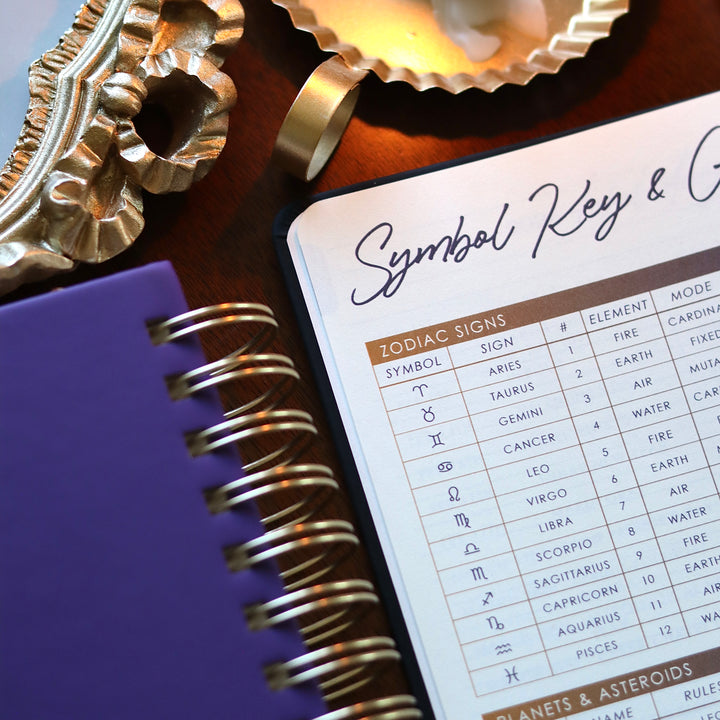 Symbol Key &
ZODIAC SIGNS
SYMBOL SIGN # ELEMENT MODE
♈ ARIES 1 FIRE CARDINA
♉ TAURUS 2 EARTH FIXED
♊ GEMINI 3 AIR MUTA
♋ CANCER 4 WATER CAR
♌ LEO 5 FIRE
♍ VIRGO 6 EARTH
♎ LIBRA 7 AIR
♏ SCORPIO 8 WATER
♐ SAGITTARIUS 9 FIRE
♑ CAPRICORN 10 EARTH
♒ AQUARIUS 11 AIR
♓ PISCES 12 WA
PLANETS & ASTEROIDS
NAME RULES